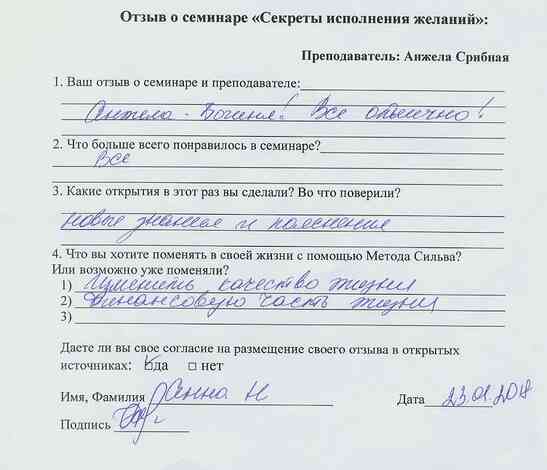 Отзыв о семинаре «Секреты исполнения желаний»:
Преподаватель: Анжела Срибная
1. Ваш отзыв о семинаре и преподавателе:
Анжела - Богиня! Все отлично!
2. Что больше всего понравилось в семинаре?
Все
3. Какие открытия в этот раз вы сделали? Во что поверили?
новые знания и пояснения
4. Что вы хотите поменять в своей жизни с помощью Метода Сильва?
Или возможно уже поменяли?
1) Изменить качество жизни
2) Финансовую часть жизни
3)
Даете ли вы свое согласие на размещение своего отзыва в открытых
источниках: да нет
Имя, Фамилия Анна Н Дата 23.01.2018
Подпись